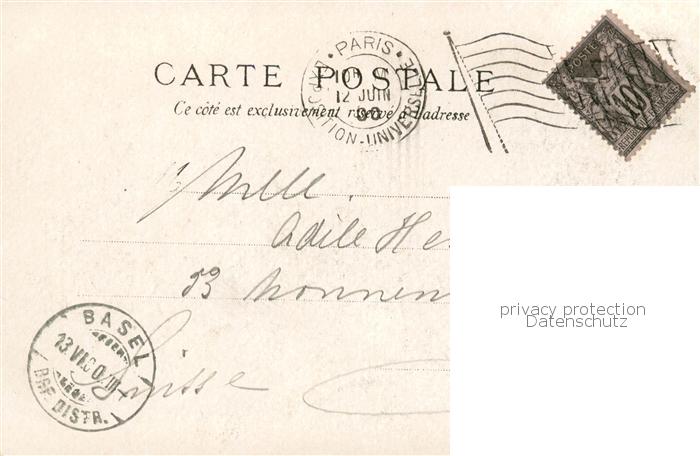 PARIS
EXPOSITION-UNIVERSELLE
12 JUIN
00
REPUBLIQUE FRANÇAISE
POSTES
10
CARTE POSTALE
Ce côté est exclusivement réservé à l'adresse
Mlle.
Adile He
53 Nonnen
Suisse
BASEL
13.VI.00
BRF. DISTR.
privacy protection
Datenschutz